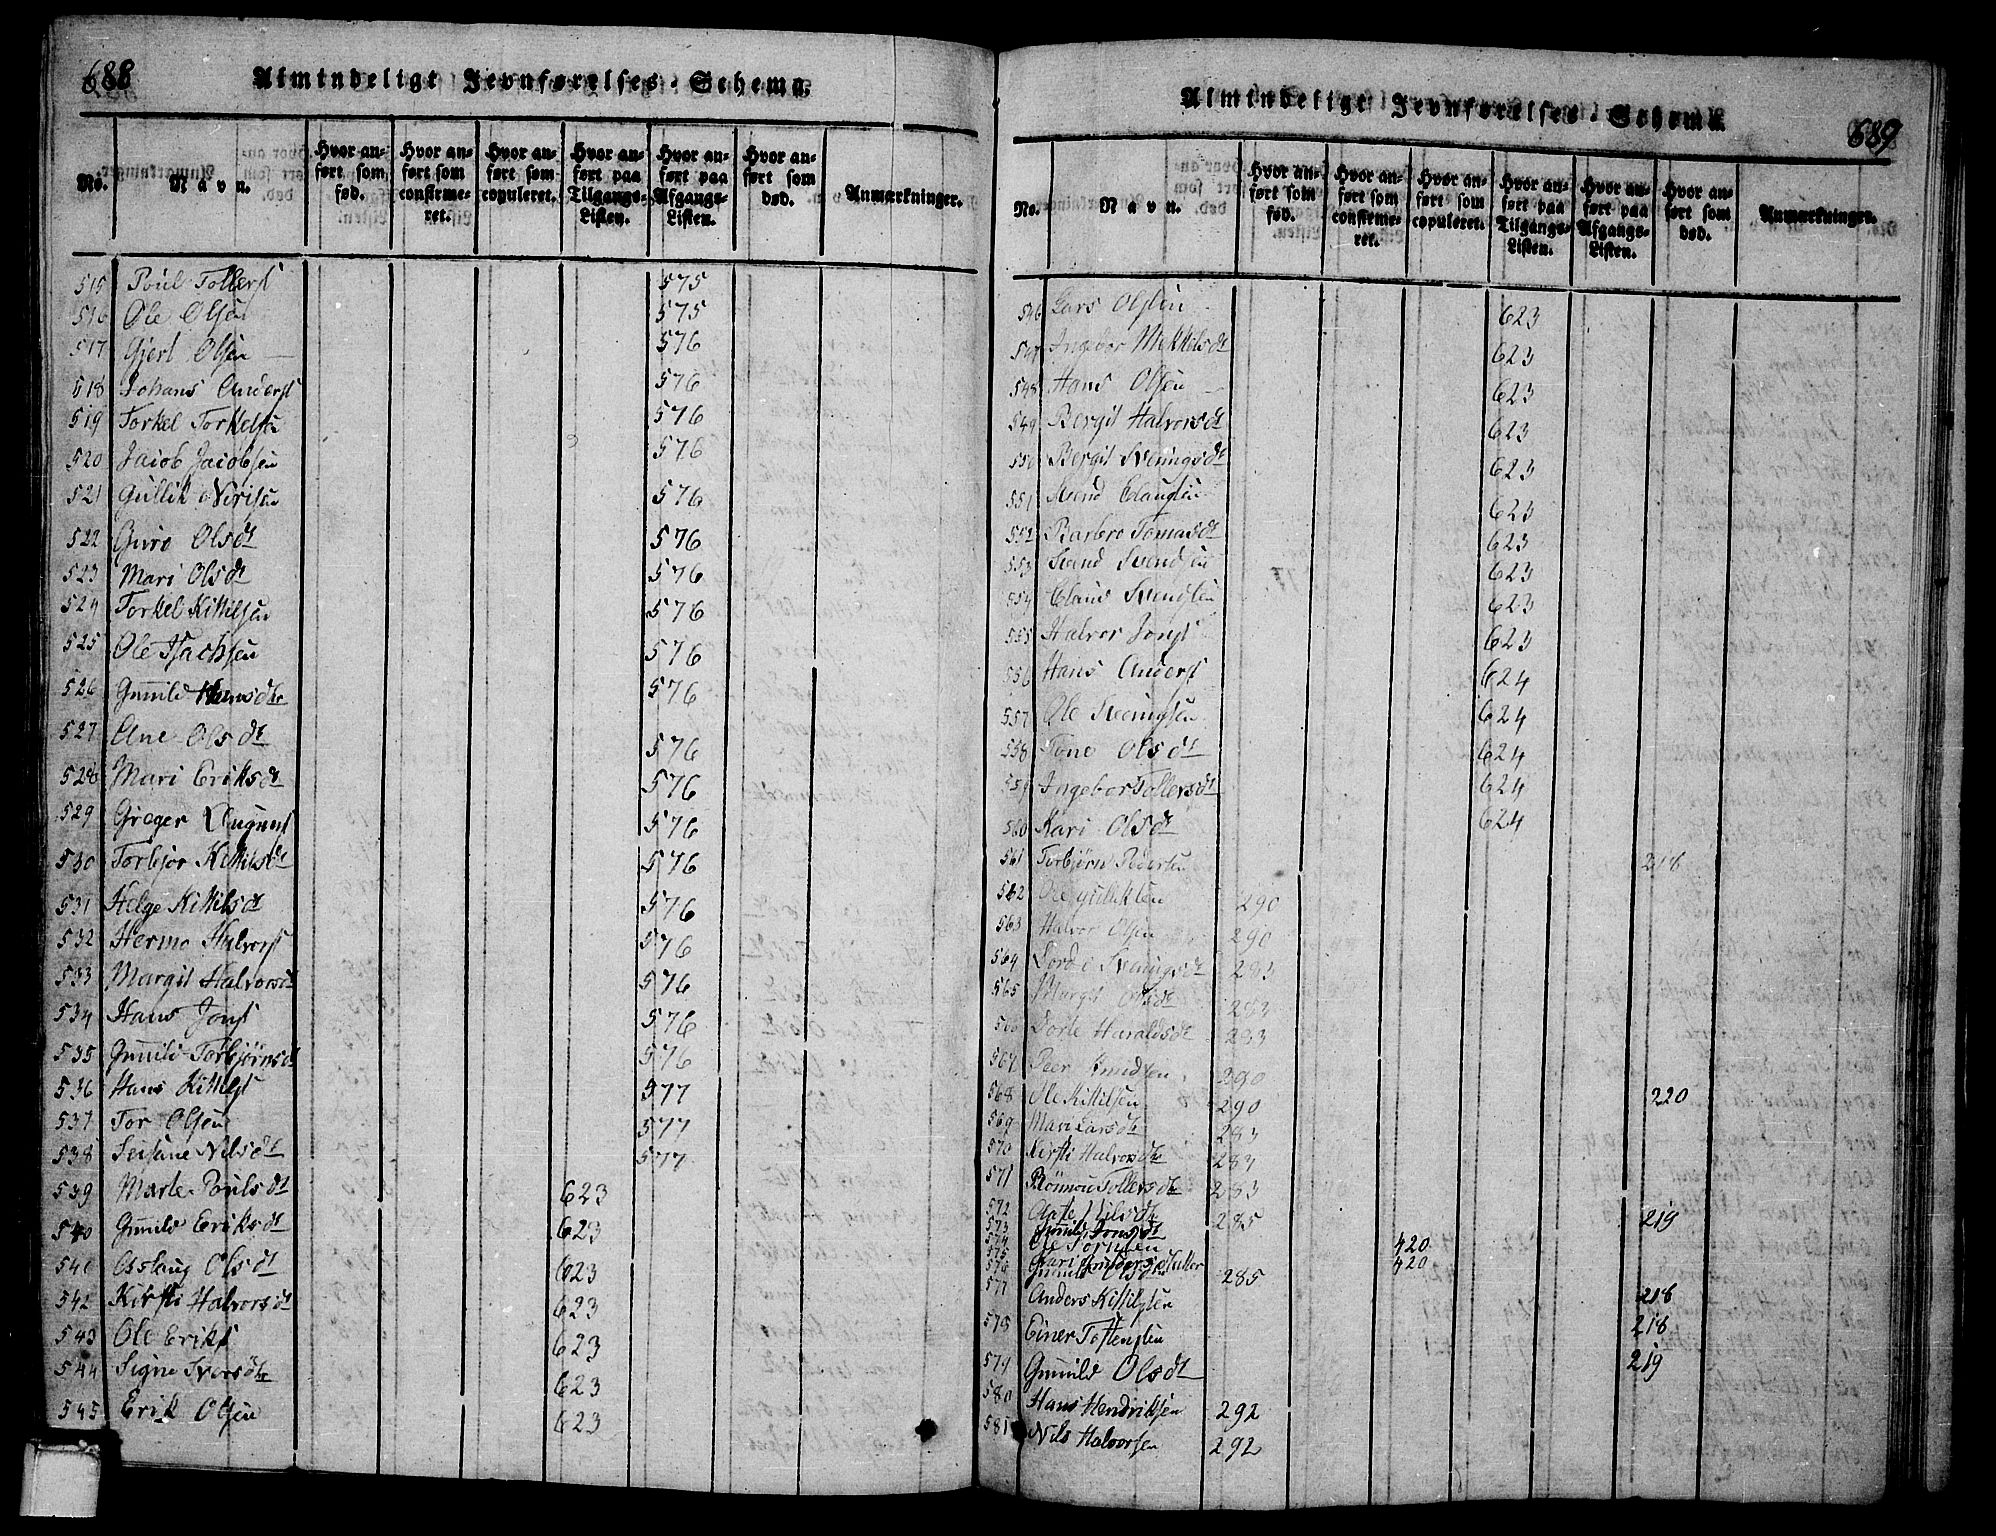 688
Almindeligt Jevnførelses-Schema.
No. Navn. Hvor anført som fød. Hvor anført som confirmeret. Hvor anført som copuleret. Hvor anført paa Tilgangs-Listen. Hvor anført paa Afgangs-Listen. Hvor anført som død. Anmærkninger.
515 Poul Tollerst 575
516 Ole Olsen 575
517 Gjert Olsen 576
518 Johans Anderst 576
519 Torkel Torkelsen 576
520 Jacob Jacobsen 576
521 Gullik Nerisen 576
522 Guro Olsdt 576
523 Mari Olsdt 576
524 Torkel Kittilsen 576
525 Ole Isachsen 576
526 Gunild Hansdtr 576
527 Ane Olsdt 576
528 Mari Eriksdt 576
529 Greger 576
530 Torbjor Kittilsdt 576
531 Helge Kittilsdt 576
532 Hermo Halvorst 576
533 Margit Halvorsdt 576
534 Hans Jonst 576
535 Gunild Torbjørnsdt 576
536 Hans Kittilst 577
537 Tor Olsen 577
538 Nilsdt 577
539 Marte Poulsdt 623
540 Gunild Eriksdt 623
540 Asslaug Olsdt 623
542 Kirsti Halvorsdt 623
543 Ole Erikst 623
544 Signe Iversdtr 623
545 Erik Olsen 623
689
Almindeligt Jevnførelses-Schema.
No. Navn. Hvor anført som fød. Hvor anført som confirmeret. Hvor anført som copuleret. Hvor anført paa Tilgangs-Listen. Hvor anført paa Afgangs-Listen. Hvor anført som død. Anmærkninger.
546 Lars Olsen 623
547 Ingebor Mikkelsdt 623
548 Hans Olsen 623
549 Bergit Halvorsdt 623
550 Bergit Sveningsdt 623
551 Svend Clausen 623
552 Barbro Tomasdt 623
553 Svend Svendsen 623
554 Claus Svendsen 623
555 Halvor Jonst 623
556 Hans Anderst 624
557 Ole Sveningsen 624
558 Tone Olsdt 624
559 Ingebor Tollersdt 624
560 Kari Olsdt 624
561 Torbjørn Pedersen 218
562 Ole Gulliksen 290
563 Halvor Olsen 290
564 Sveningsdt 283
565 Margit Olsdt 283
566 Dorte Haraldsdt 283
567 Peer Knudsen 290
568 Ole Kittilsen 290 220
569 Mari Larsdt 283
570 Kirsti Halvorsdtr 283
571 Rönnou Tollersdtr 283
572 Nilsdtr 285 219
573 Gunild Jonsdt
574 Ole 420
575 Kari 420
576 Gunild Olsdtr 285
577 Anders Kittilsen 218
578 Einer Tostensen 218
579 Gunild Olsdt 219
580 Hans Hendriksen 292
581 Nils Halvorsen 292